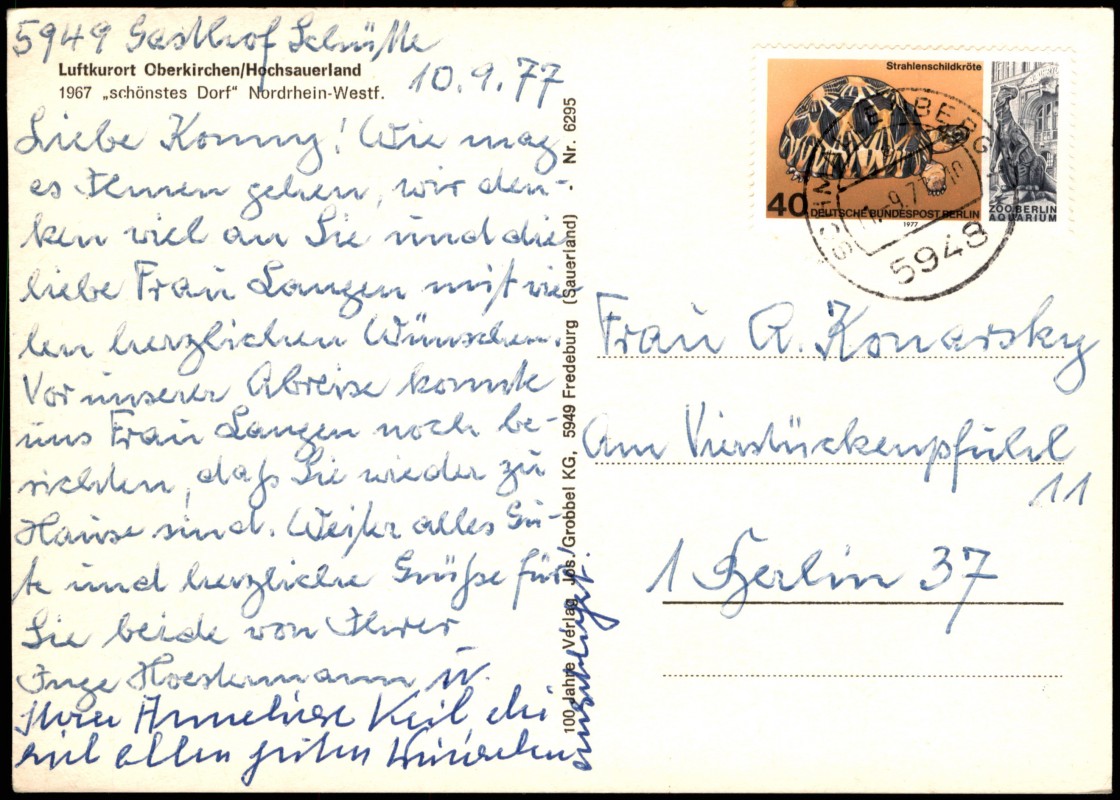 5949 Gasthof Schütte
Luftkurort Oberkirchen/Hochsauerland
1967 „schönstes Dorf“ Nordrhein-Westf.
10.9.77
Liebe Konny! Wie mag
es Ihnen gehen, wir den-
ken viel an Sie und die
liebe Frau Langen mit vie-
len herzlichen Wünschen.
Vor unserer Abreise konnte
uns Frau Langen noch be-
richten, daß Sie wieder zu
Hause sind. Weiter alles Gu-
te und herzliche Grüße für
Sie beide von Ihrer
Inge Hoestermann u.
Ihrer Anneliese Keil die
mit allen guten Wünschen
einschlägt.
100 Jahre Verlag Jos. Grobbel KG, 5949 Fredeburg (Sauerland) Nr. 6295
Strahlenschildkröte
40 DEUTSCHE BUNDESPOST BERLIN
1977
ZOO BERLIN
AQUARIUM
SCHMALLENBERG
5948
Frau A. Konarsky
Am Vierstückenpfuhl
11
1 Berlin 37